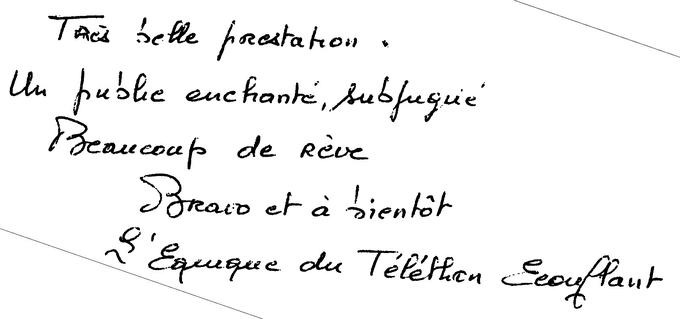 Très belle prestation.
Un public enchanté, subjugué
Beaucoup de rêve
Bravo et à bientôt
L'Equipe du Téléthon Ecouflant